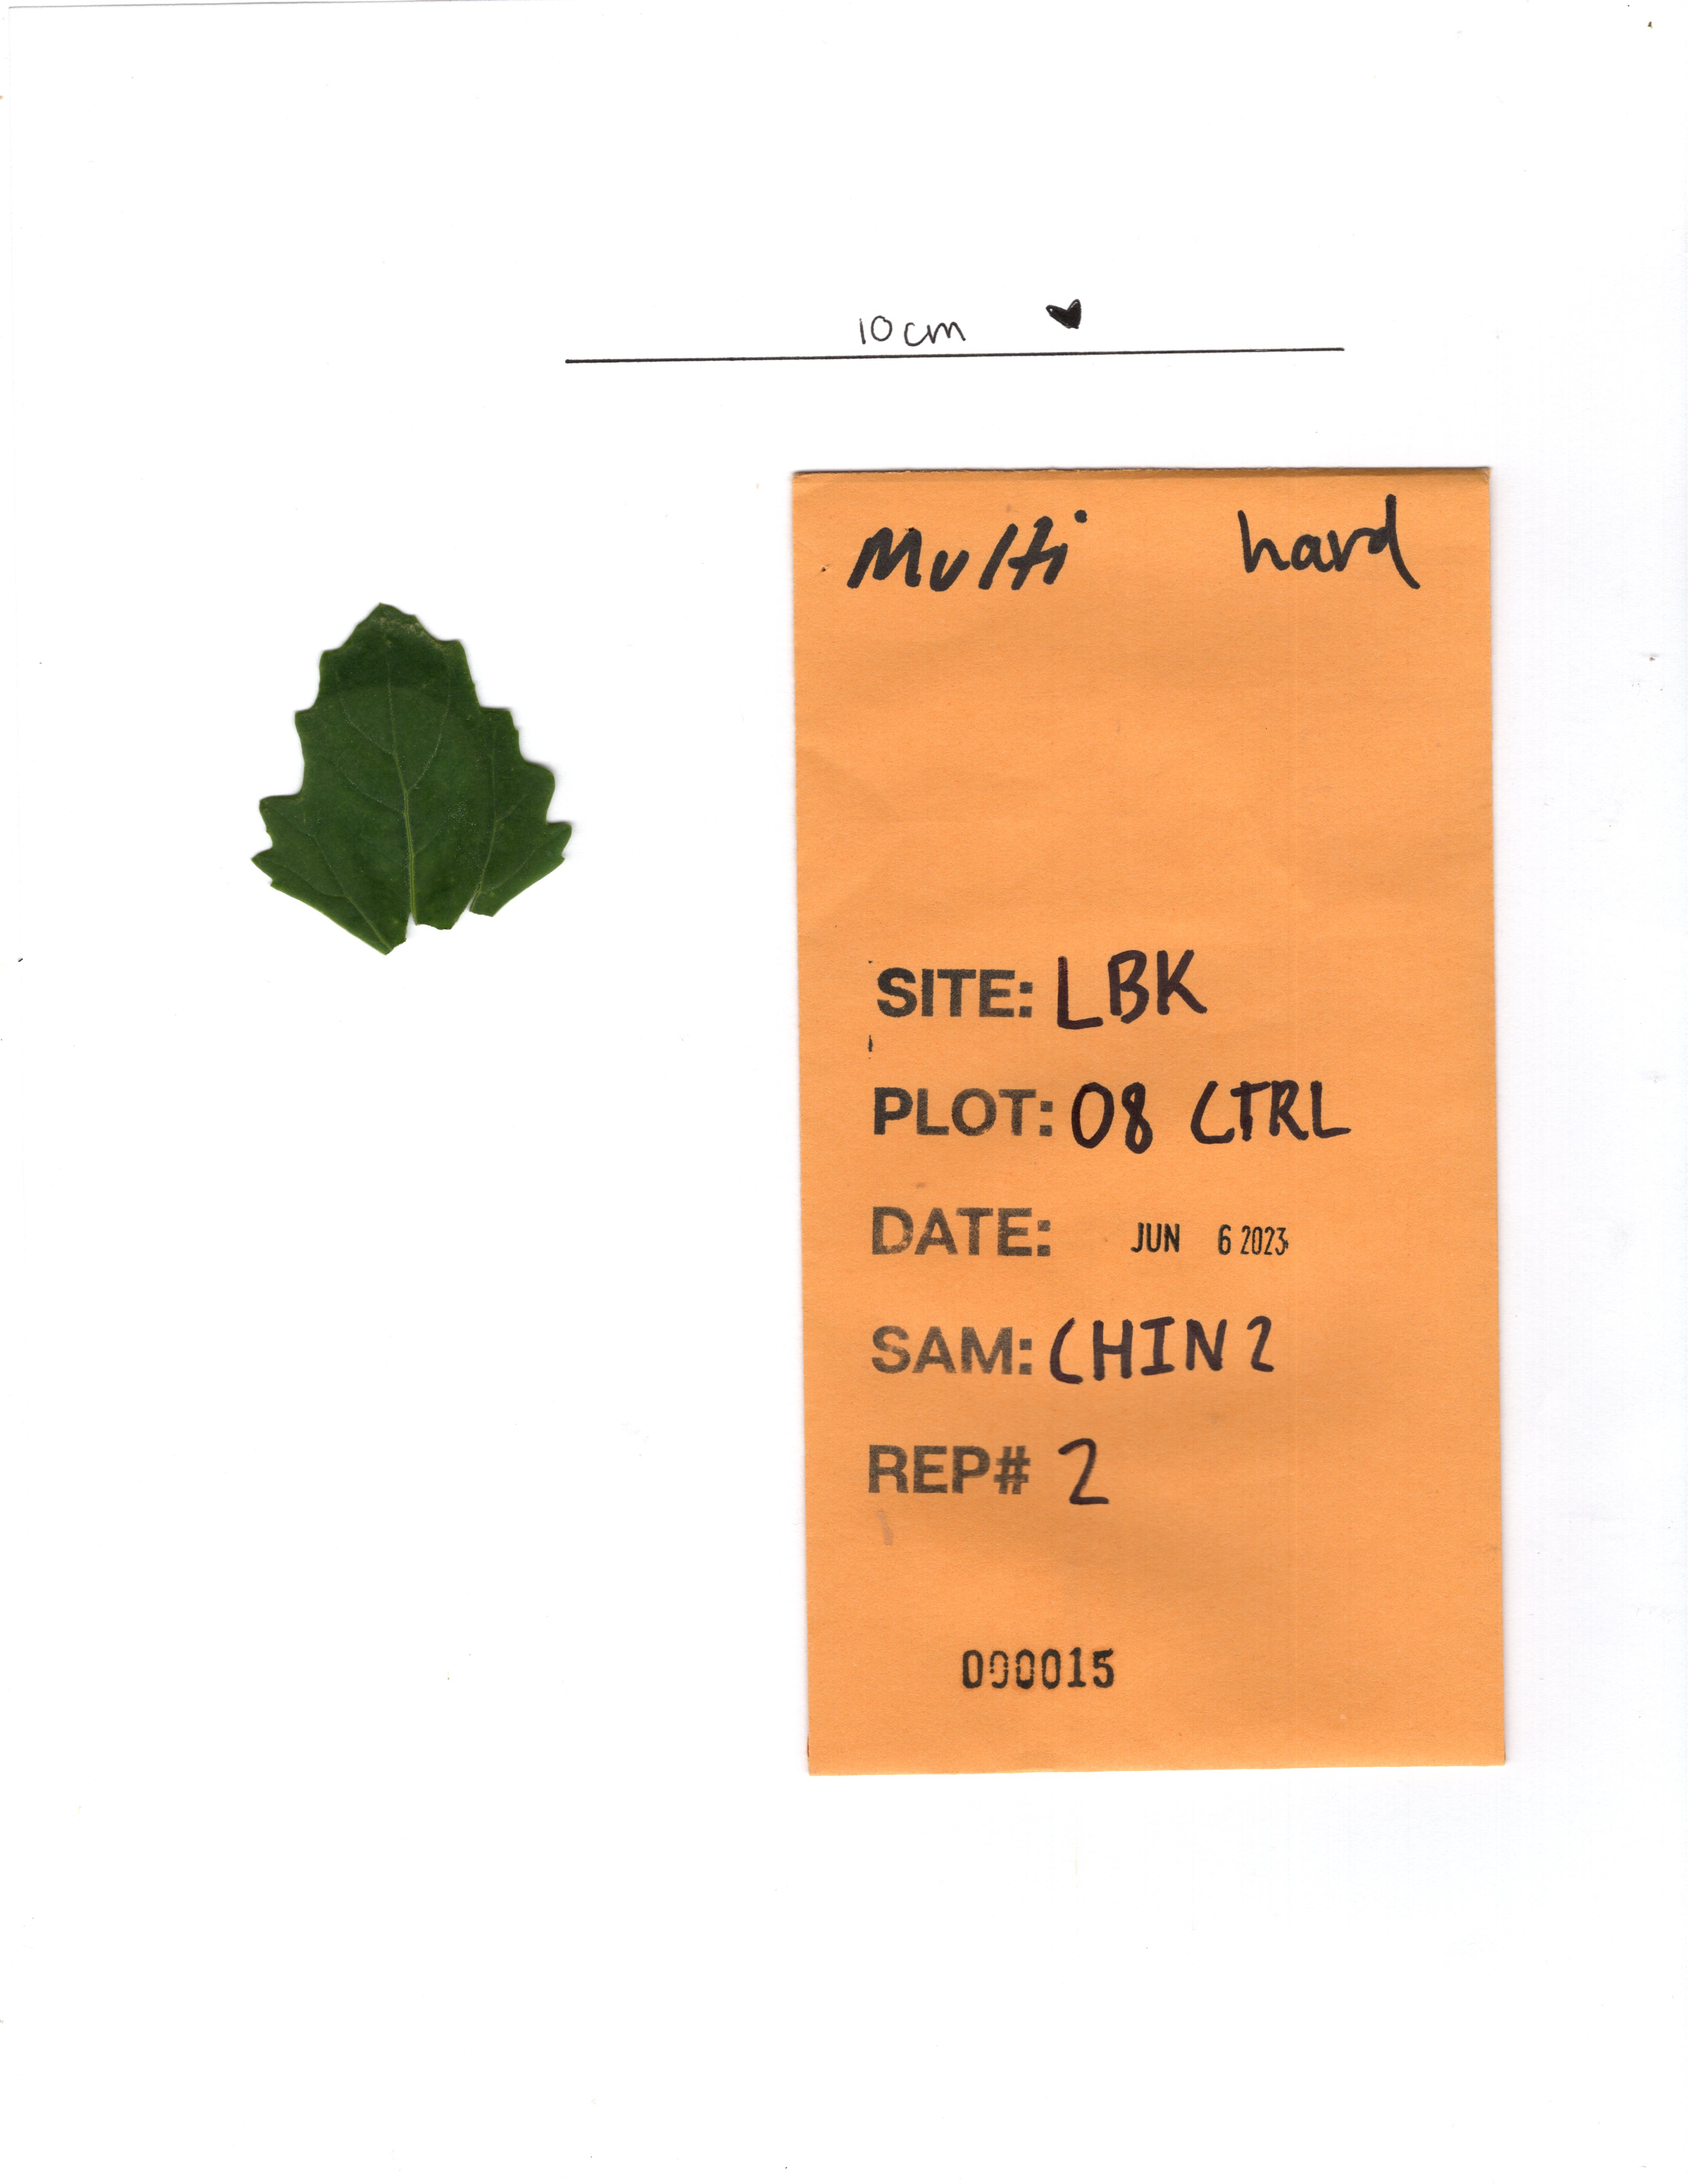 10cm
Multi hard
SITE: LBK
PLOT: 08 CTRL
DATE: JUN 6 2023
SAM: CHIN 2
REP# 2
000015